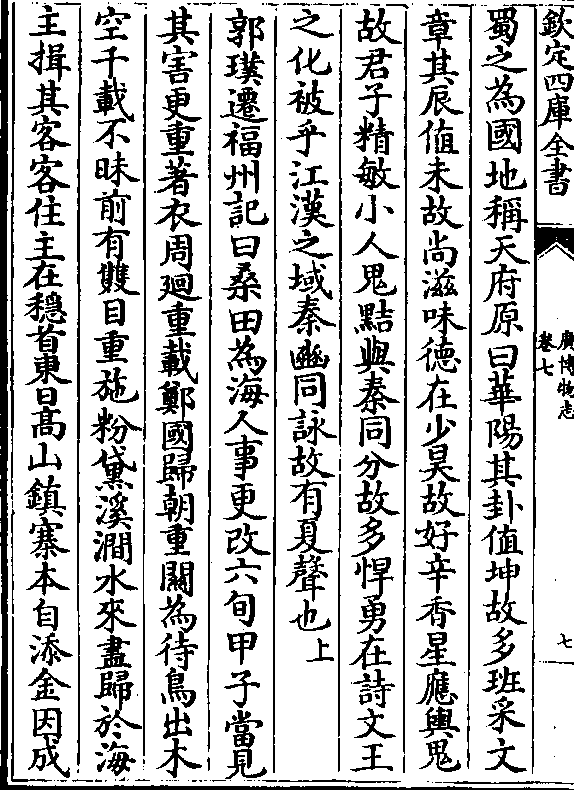 欽定四庫全書
廣博物志
卷七
七
蜀之為國地稱天府原曰華陽其卦值坤故多班采文
章其辰值未故尚滋味德在少昊故好辛香星應輿鬼
故君子精敏小人鬼黠與秦同分故多悍勇在詩文王
之化被乎江漢之域秦豳同詠故有夏聲也上
郭璞遷福州記曰桑田為海人事更改六旬甲子當見
其害更重著衣周廻重載鄭國歸朝重關為待鳥出木
空千載不昧前有雙目重施粉黛溪澗水來盡歸於海
主揖其客客住主在穩首東日高山鎮寨本自添金因成